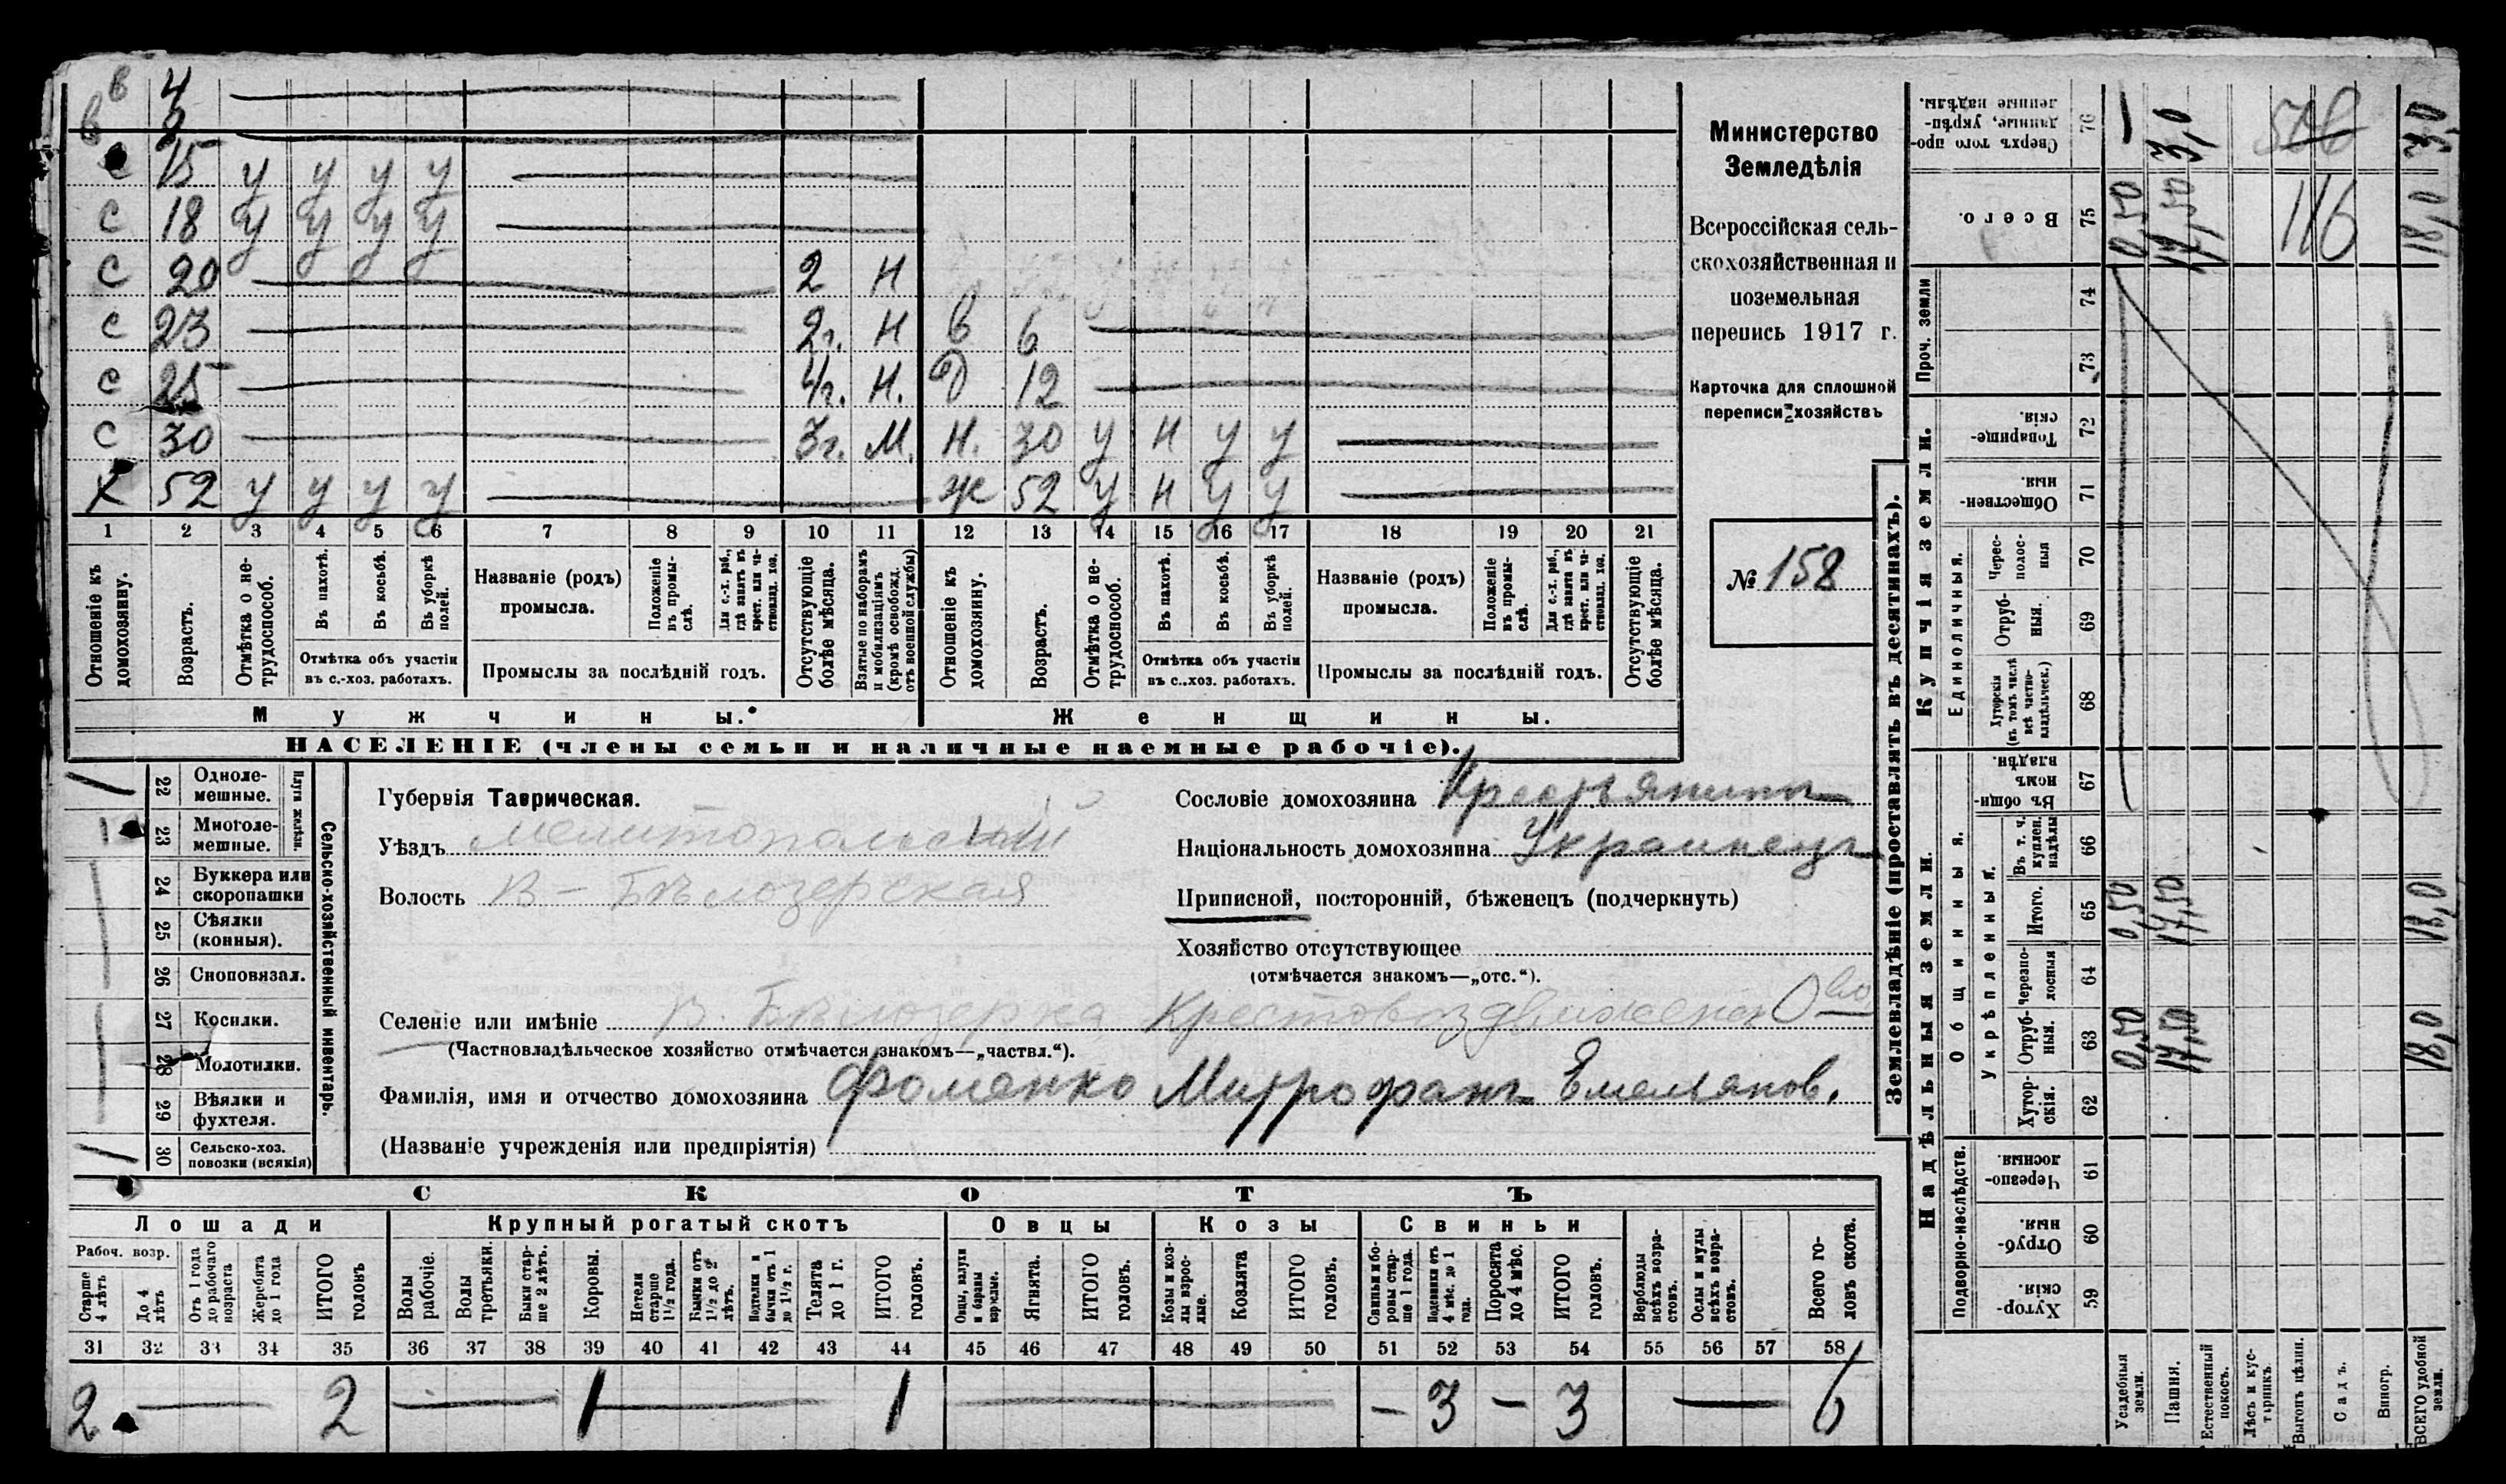 в 4
в 5
с 15 у у у у
с 18 у у у у
с 20 2 Н
с 23 2г. Н в 6
с 25 4г. Н. д 12
с 30 3г. М. Н. 30 у н у у
х 52 у у у у ж 52 у н у у
1 2 3 4 5 6 7 8 9 10 11 12 13 14 15 16 17 18 19 20 21
Отношеніе къ домохозяину.
Возрастъ.
Отмѣтка о не-трудоспособ.
Въ пахотѣ.
Въ косьбѣ.
Въ уборкѣ полей.
Отмѣтка объ участіи
въ с.-хоз. работахъ.
Названіе (родъ)
промысла.
Положеніе въ промы-слѣ.
Для с.-х. раб., гдѣ занятъ въ крест. или ча-стновлад. хоз.
Промыслы за послѣдній годъ.
Отсутствующіе болѣе мѣсяца.
Взятые по наборамъ и мобилизаціямъ (кромѣ освобожд. отъ военной службы)
Отношеніе къ домохозяину.
Возрастъ.
Отмѣтка о не-трудоспособ.
Въ пахотѣ.
Въ косьбѣ.
Въ уборкѣ полей.
Отмѣтка объ участіи
въ с.-хоз. работахъ.
Названіе (родъ)
промысла.
Положеніе въ промы-слѣ.
Для с.-х. раб., гдѣ занята въ крест. или ча-стновлад. хоз.
Промыслы за послѣдній годъ.
Отсутствующіе болѣе мѣсяца.
Мужчины. Женщины.
НАСЕЛЕНІЕ (члены семьи и наличные наемные рабочіе).
Министерство
Земледѣлія
Всероссійская сель-
скохозяйственная и
поземельная
перепись 1917 г.
Карточка для сплошной
переписи хозяйствъ
№ 158
Сельско-хозяйственный инвентарь.
Плуги желѣзн.
1 22 Одноле-мешные.
23 Многоле-мешные.
24 Буккера или скоропашки
25 Сѣялки (конныя).
26 Сноповязал.
27 Косилки.
28 Молотилки.
29 Вѣялки и фухтеля.
1 30 Сельско-хоз. повозки (всякія)
Губернія Таврическая.
Уѣздъ Мелитопольскій
Волость В-Бѣлозерская
Сословіе домохозяина Крестьянинъ
Національность домохозяина Украинецъ
Приписной, посторонній, бѣженецъ (подчеркнуть)
Хозяйство отсутствующее
(отмѣчается знакомъ—„отс.“).
Селеніе или имѣніе В. Бѣлозерка Крестовоздвижен О-во
(Частновладѣльческое хозяйство отмѣчается знакомъ—„частвл.“).
Фамилія, имя и отчество домохозяина Фоменко Митрофанъ Емельянов.
(Названіе учрежденія или предпріятія)
СКОТЪ
Лошади Крупный рогатый скотъ Овцы Козы Свиньи
Рабоч. возр.
Старше 4 лѣтъ
До 4 лѣтъ
Отъ 1 года до рабочаго возраста
Жеребята до 1 года
ИТОГО головъ
Волы рабочіе.
Волы третьяки.
Быки стар-ше 2 лѣтъ.
Коровы.
Нетели старше 1½ года.
Бычки отъ 1½ до 2 лѣтъ.
Подтелки и бычки отъ 1 до 1½ г.
Телята до 1 г.
ИТОГО головъ.
Овцы, валухи и бараны взрослые.
Ягнята.
ИТОГО головъ.
Козы и коз-лы взрос-лые.
Козлята
ИТОГО головъ.
Свиньи и бо-ровы стар-ше 1 года.
Подсвинки отъ 4 мѣс. до 1 года.
Поросята до 4 мѣс.
ИТОГО головъ.
Верблюды всѣхъ возра-стовъ.
Ослы и мулы всѣхъ возра-стовъ.
Всего го-ловъ скота.
31 32 33 34 35 36 37 38 39 40 41 42 43 44 45 46 47 48 49 50 51 52 53 54 55 56 57 58
2 — 2 — 1 — 1 — — — 3 — 3 — 6
Землевладѣніе (проставлять въ десятинахъ).
Сверхъ того про-данные, укрѣп-ленные надѣлы. 76 — 3,0 3,0
506
Всего. 75 0,50 17,50 116 18,0
Купчія земли.
Проч. земли
74
73
Товарище-скія. 72
Обществен-ныя. 71
Единоличныя.
Черес-полос-ныя 70
Отруб-ныя. 69
Хуторскія (въ томъ числѣ всѣ частно-владѣльческ.) 68
Надѣльныя земли.
Общинныя.
Въ общин-номъ владѣн. 67
Укрѣпленныя.
Въ т. ч. куплен. надѣлы 66
Итого. 65 0,50 17,50 18,0
Черезпо-лосныя 64
Отруб-ныя. 63 0,50 17,50 18,0
Хутор-скія. 62
Подворно-наслѣдств.
Черезпо-лосныя. 61
Отруб-ныя. 60
Хутор-скія. 59
Усадебныя земли.
Пашня.
Естественный покосъ.
Лѣсъ и кус-тарникъ.
Выгонъ цѣлин.
Садъ.
Виногр.
ВСЕГО удобной земли.